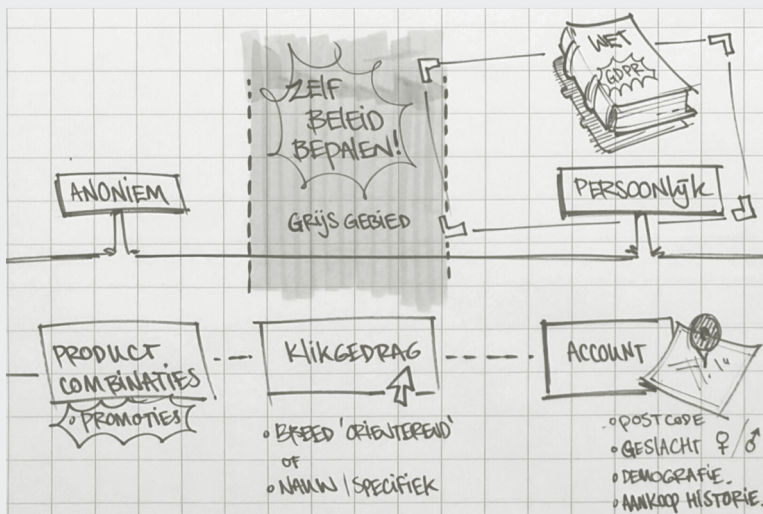 ZELF
BELEID
BEPALEN!
GRIJS GEBIED
WET
GDPR
ANONIEM
PERSOONLIJK
PRODUCT
COMBINATIES
• PROMOTIES
KLIKGEDRAG
ACCOUNT
• BREED 'ORIENTEREND'
OF
• NAUW / SPECIFIEK
• POSTCODE
• GESLACHT ♀/♂
• DEMOGRAFIE.
• AANKOOP HISTORIE.